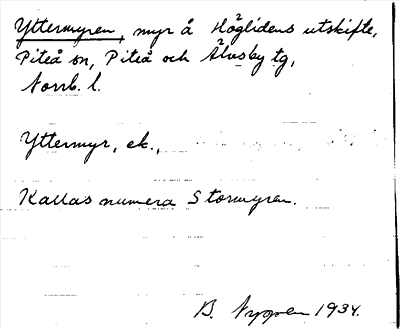 Yttermyren, myr å Höglidens utskifte,
Piteå sn, Piteå och Älvsby tg,
Norrb. l.
Yttermyr, ek.,
Kallas numera Stormyren.
B. Nygren 1934.